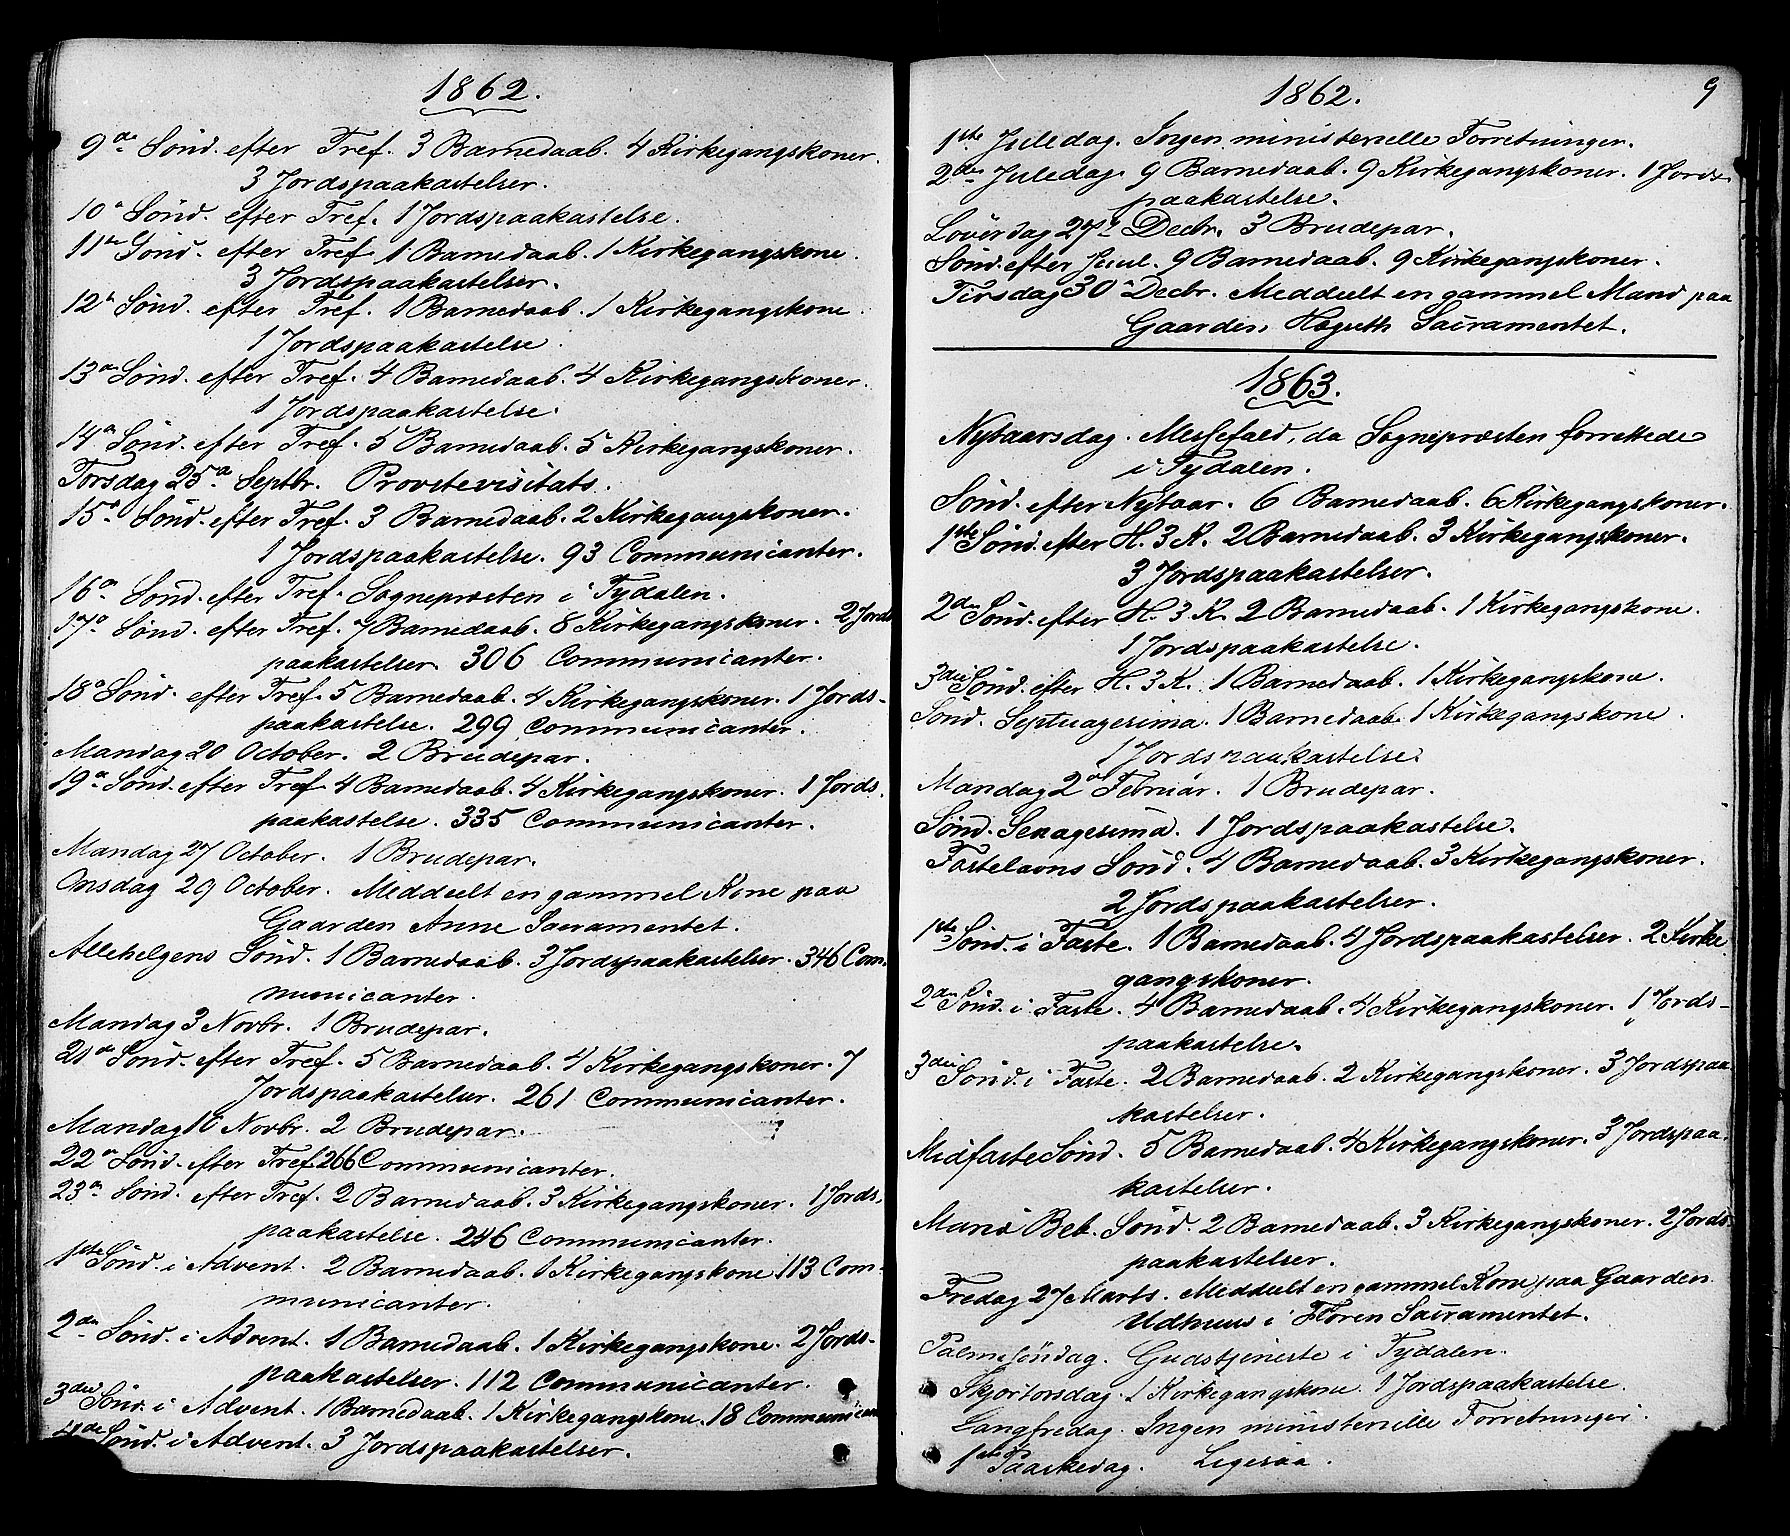 1862.
9de Sönd. efter Tref. 3 Barnedaab. 4 Kirkegangskoner.
3 Jordspaakastelser.
10a Sönd. efter Tref. 1 Jordspaakastelse.
11te Sönd. efter Tref. 1 Barnedaab. 1 Kirkegangskone.
3 Jordspaakastelser.
12te Sönd. efter Tref. 1 Barnedaab. 1 Kirkegangskone.
1 Jordspaakastelse.
13de Sönd. efter Tref. 4 Barnedaab. 4 Kirkegangskoner.
1 Jordspaakastelse.
14de Sönd. efter Tref. 5 Barnedaab. 5 Kirkegangskoner.
Torsdag 25de Septbr. Provstevisitats.
15de Sönd. efter Tref. 3 Barnedaab. 2 Kirkegangskoner.
1 Jordspaakastelse. 93 Communicanter.
16de Sönd. efter Tref. Sognepræsten i Tydalen.
17de Sönd. efter Tref. 7 Barnedaab. 8 Kirkegangskoner. 2 Jords
paakastelser. 306 Communicanter.
18de Sönd. efter Tref. 5 Barnedaab. 4 Kirkegangskoner. 1 Jords-
paakastelse. 299 Communicanter.
Mandag 20 October. 2 Brudepar.
19de Sönd. efter Tref. 4 Barnedaab. 4 Kirkegangskoner. 1 Jords.
paakastelse. 335 Communicanter.
Mandag 27 October. 1 Brudepar.
Onsdag 29 October. Meddeelt en gammel Kone paa
Gaarden Anne Sacramentet.
Allehelgens Sönd. 1 Barnedaab. 3 Jordspaakastelser. 346 Com-
municanter.
Mandag 3 Novbr. 1 Brudepar.
21de Sönd. efter Tref. 5 Barnedaab. 4 Kirkegangskoner. 7
Jordspaakastelser. 261 Communicanter.
Mandag 10 Novbr. 2 Brudepar.
22de Sönd. efter Tref. 266 Communicanter.
23de Sönd. efter Tref. 2 Barnedaab. 3 Kirkegangskoner. 1 Jords.
paakastelse. 246 Communicanter.
1ste Sönd. i Advent. 2 Barnedaab. 1 Kirkegangskone 113 Com-
municanter.
2den Sönd. i Advent. 1 Barnedaab. 1 Kirkegangskone. 2 Jords-
paakastelser. 112 Communicanter.
3die Sönd. i Advent. 1 Barnedaab. 1 Kirkegangskone. 18 Communican
4de Sönd. i Advent. 3 Jordspaakastelser.
1862. 9
1ste Juledag. Ingen ministerielle Forretninger.
2den Juledag 9 Barnedaab. 9 Kirkegangskoner. 1 Jords-
paakastelse.
Löverdag 27de Decbr. 3 Brudepar.
Sönd. efter Juul. 9 Barnedaab. 9 Kirkegangskoner.
Tirsdag 30 Decbr. Meddeelt en gammel Mand paa
Gaarden Sacramentet.
1863.
Nytaarsdag. Messefald, da Sognepræsten forrettede
i Tydalen.
Sönd. efter Nytaar. 6 Barnedaab. 6 Kirkegangskoner.
1ste Sönd. efter H. 3 K. 2 Barnedaab. 3 Kirkegangskoner.
3 Jordspaakastelser.
2den Sönd. efter H. 3 K. 2 Barnedaab. 1 Kirkegangskone.
1 Jordspaakastelse.
3die Sönd. efter H. 3 K. 1 Barnedaab. 1 Kirkegangskone.
Sönd. Septuagesima. 1 Barnedaab. 1 Kirkegangskone.
1 Jordspaakastelse.
Mandag 2de Februar. 1 Brudepar.
Sönd. Sexagesima. 1 Jordspaakastelse.
Fastelavns Sönd. 4 Barnedaab. 3 Kirkegangskoner.
2 Jordspaakastelser.
1ste Sönd. i Faste. 1 Barnedaab. 4 Jordspaakastelser. 2 Kirke-
gangskoner.
2den Sönd. i Faste. 4 Barnedaab. 4 Kirkegangskoner. 1 Jords-
paakastelse.
3die Sönd. i Faste. 2 Barnedaab. 2 Kirkegangskoner. 3 Jordspaa
kastelser.
Midfaste Sönd. 5 Barnedaab. 4 Kirkegangskoner. 3 Jordspaa-
kastelser.
Mariæ Beb. Sönd. 2 Barnedaab. 3 Kirkegangskoner. 2 Jords
paakastelser.
Fredag 27 Marts. Meddeelt en gammel Kone paa Gaarden
Udhuus i Floren Sacramentet.
Palmesöndag. Gudstjeneste i Tydalen.
Skjertorsdag. 1 Kirkegangskone. 1 Jordspaakastelse.
Langfredag. Ingen ministerielle Forretninger.
1ste Paaskedag. Ligesaa.